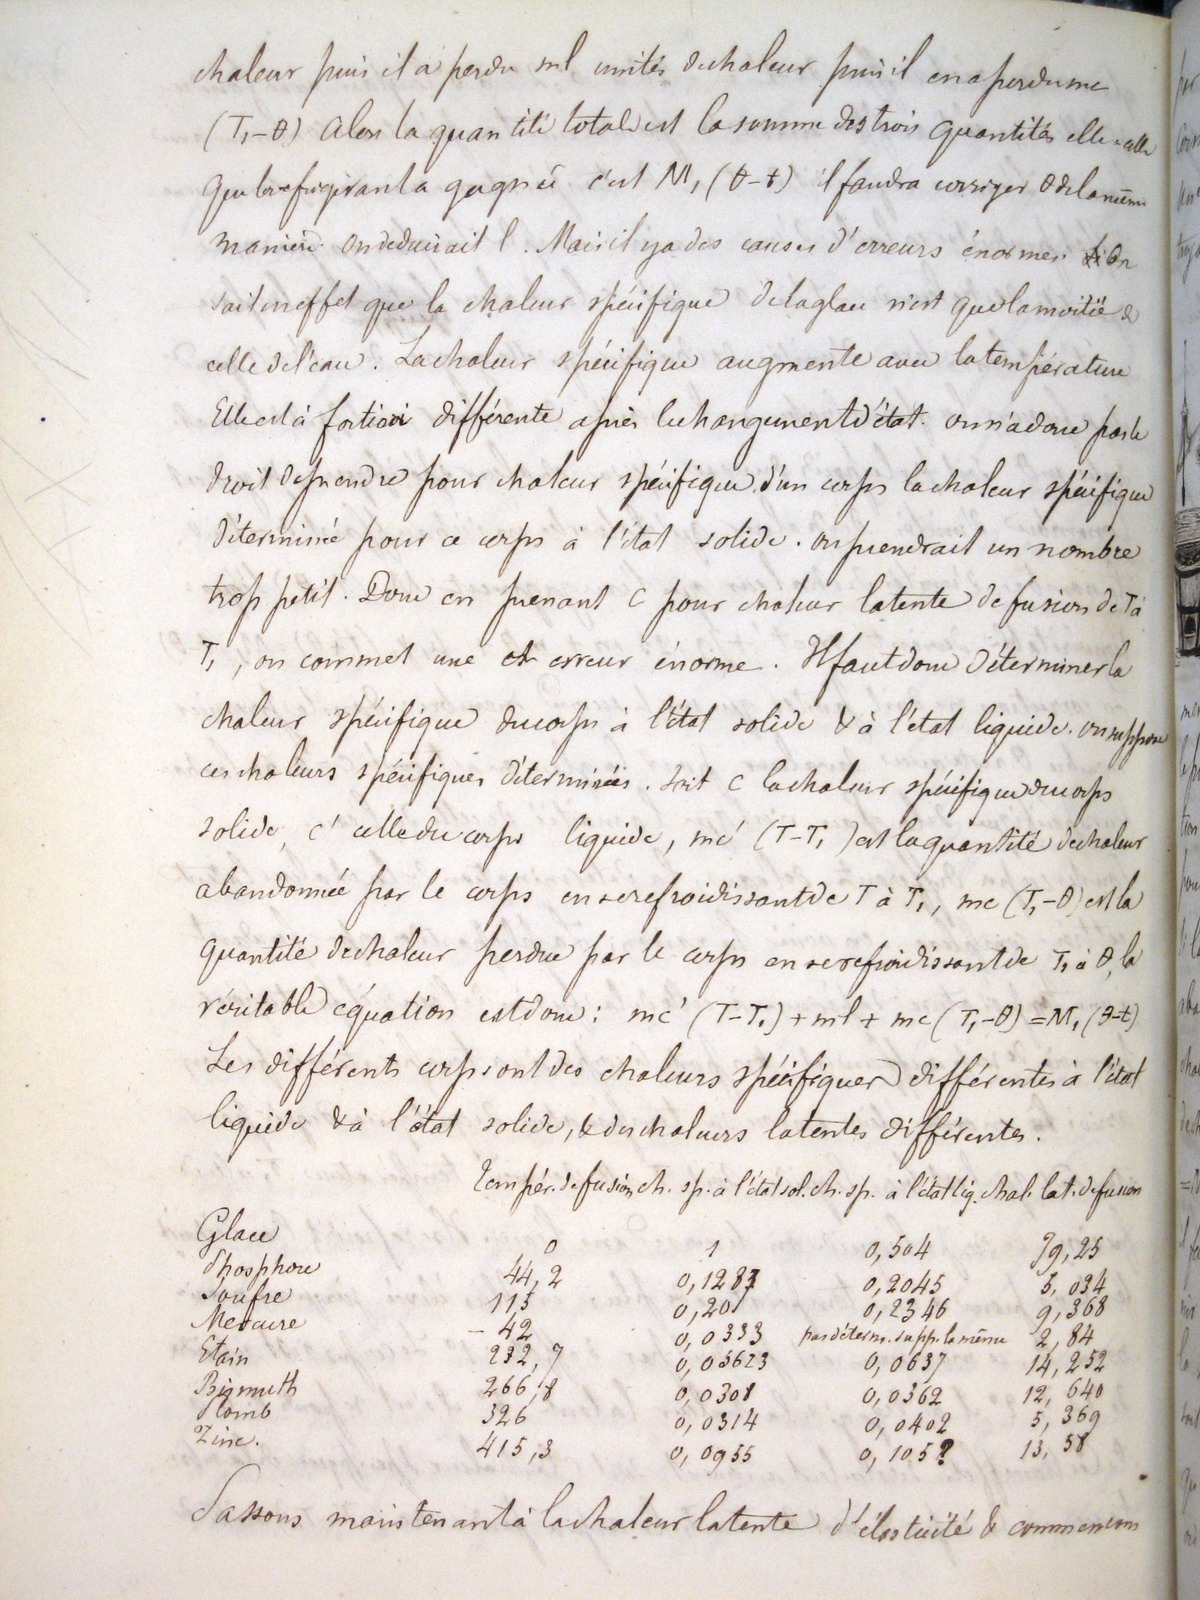 chaleur puis il a perdu ml unités de chaleur puis il en a perdu mc
(T₁-θ) Alors la quantité totale est la somme des trois quantités elle = celle
que le refrigirant a gagnée c'est M₁(θ-t) il faudra corriger θ de la même
manière on deduirait l. Mais il y a des causes d'erreurs énormes On
sait en effet que la chaleur spécifique de la glace n'est que la moitié de
celle de l'eau. La chaleur spécifique augmente avec la température
Elle est à fortiori différente après le changement d'état. on n'a donc pas le
droit de prendre pour chaleur spécifique d'un corps la chaleur spécifique
déterminée pour ce corps à l'état solide. on prendrait un nombre
trop petit. Donc en prenant C pour chaleur latente de fusion de T à
T₁, on commet une erreur énorme. Il faut donc déterminer la
chaleur spécifique du corps à l'état solide & à l'état liquide. on suppose
ces chaleurs spécifiques déterminées. Soit C la chaleur spécifique du corps
solide, c' celle du corps liquide, mc' (T-T₁) est la quantité de chaleur
abandonnée par le corps en se refroidissant de T à T₁, mc (T₁-θ) est la
quantité de chaleur perdue par le corps en se refroidissant de T₁ à θ, la
véritable équation est donc: mc' (T-T₁) + ml + mc (T₁-θ) = M₁(θ-t)
Les différents corps ont des chaleurs spécifiques différentes à l'état
liquide & à l'état solide, & des chaleurs latentes différentes.
Tempér. de fusion ch. sp. à l'état sol. ch. sp. à l'état liq. chal. lat. de fusion
Glace 0 1 0,504 79,25
Phosphore 44,2 0,1287 0,2045 5,034
Soufre 115 0,20 0,2346 9,368
Mercure -42 0,0333 pas déterm. supp. la même 2,84
Etain 232,7 0,05623 0,0637 14,252
Bismuth 266,8 0,0308 0,0362 12,640
Plomb 326 0,0314 0,0402 5,369
Zinc. 415,3 0,0955 0,105? 13,58
Passons maintenant à la chaleur latente d'élasticité & commencons